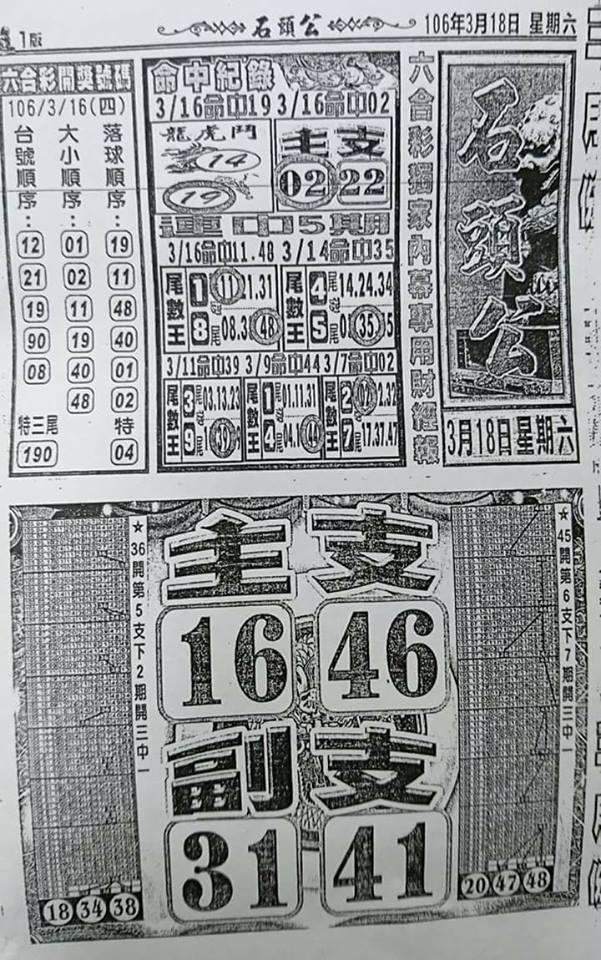 1版
石頭公
106年3月18日 星期六
六合彩開獎號碼
106/3/16(四)
台號順序：
12
21
19
90
08
特三尾
190
大小順序：
01
02
11
19
40
48
落球順序：
19
11
48
40
01
02
特
04
命中紀錄
3/16命中19 3/16命中02
龍虎鬥
14
19
主支
02 22
連中5期
3/16命中11.48 3/14命中35
尾數王
1尾 11 21.31
8尾 08.3 48
尾數王
4尾 14.24.34
5尾 35
3/11命中39 3/9命中44 3/7命中02
尾數王
3尾 03.13.23
9尾 39
尾數王
1尾 01.11.31
4尾 44
尾數王
2尾 02 2.32
7尾 17.37.47
六合彩獨家內幕專用財經報
石頭公
3月18日星期六
★36開第5支下2期開三中一
18 34 38
主支
16 46
副支
31 41
★45開第6支下7期開三中一
20 47 48